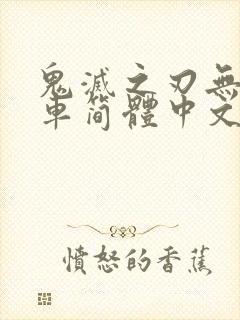 鬼滅之刃無
車简體中文
憤怒的香蕉